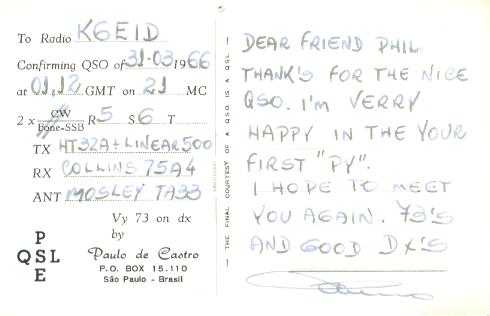 To Radio K6EID
Confirming QSO of 31-03 1966
at 01,12 GMT on 21 MC
2 x CW
Fone-SSB R 5 S 6 T
TX HT32A + LINEAR 500
RX COLLINS 75A4
ANT MOSLEY TA33
Vy 73 on dx
by
Paulo de Castro
P.O. BOX 15.110
São Paulo - Brasil
P
QSL
E
— THE FINAL COURTESY OF A QSO IS A QSL —
DEAR FRIEND PHIL
THANK'S FOR THE NICE
QSO. I'M VERRY
HAPPY IN THE YOUR
FIRST "PY".
I HOPE TO MEET
YOU AGAIN. 73'S
AND GOOD DX'S